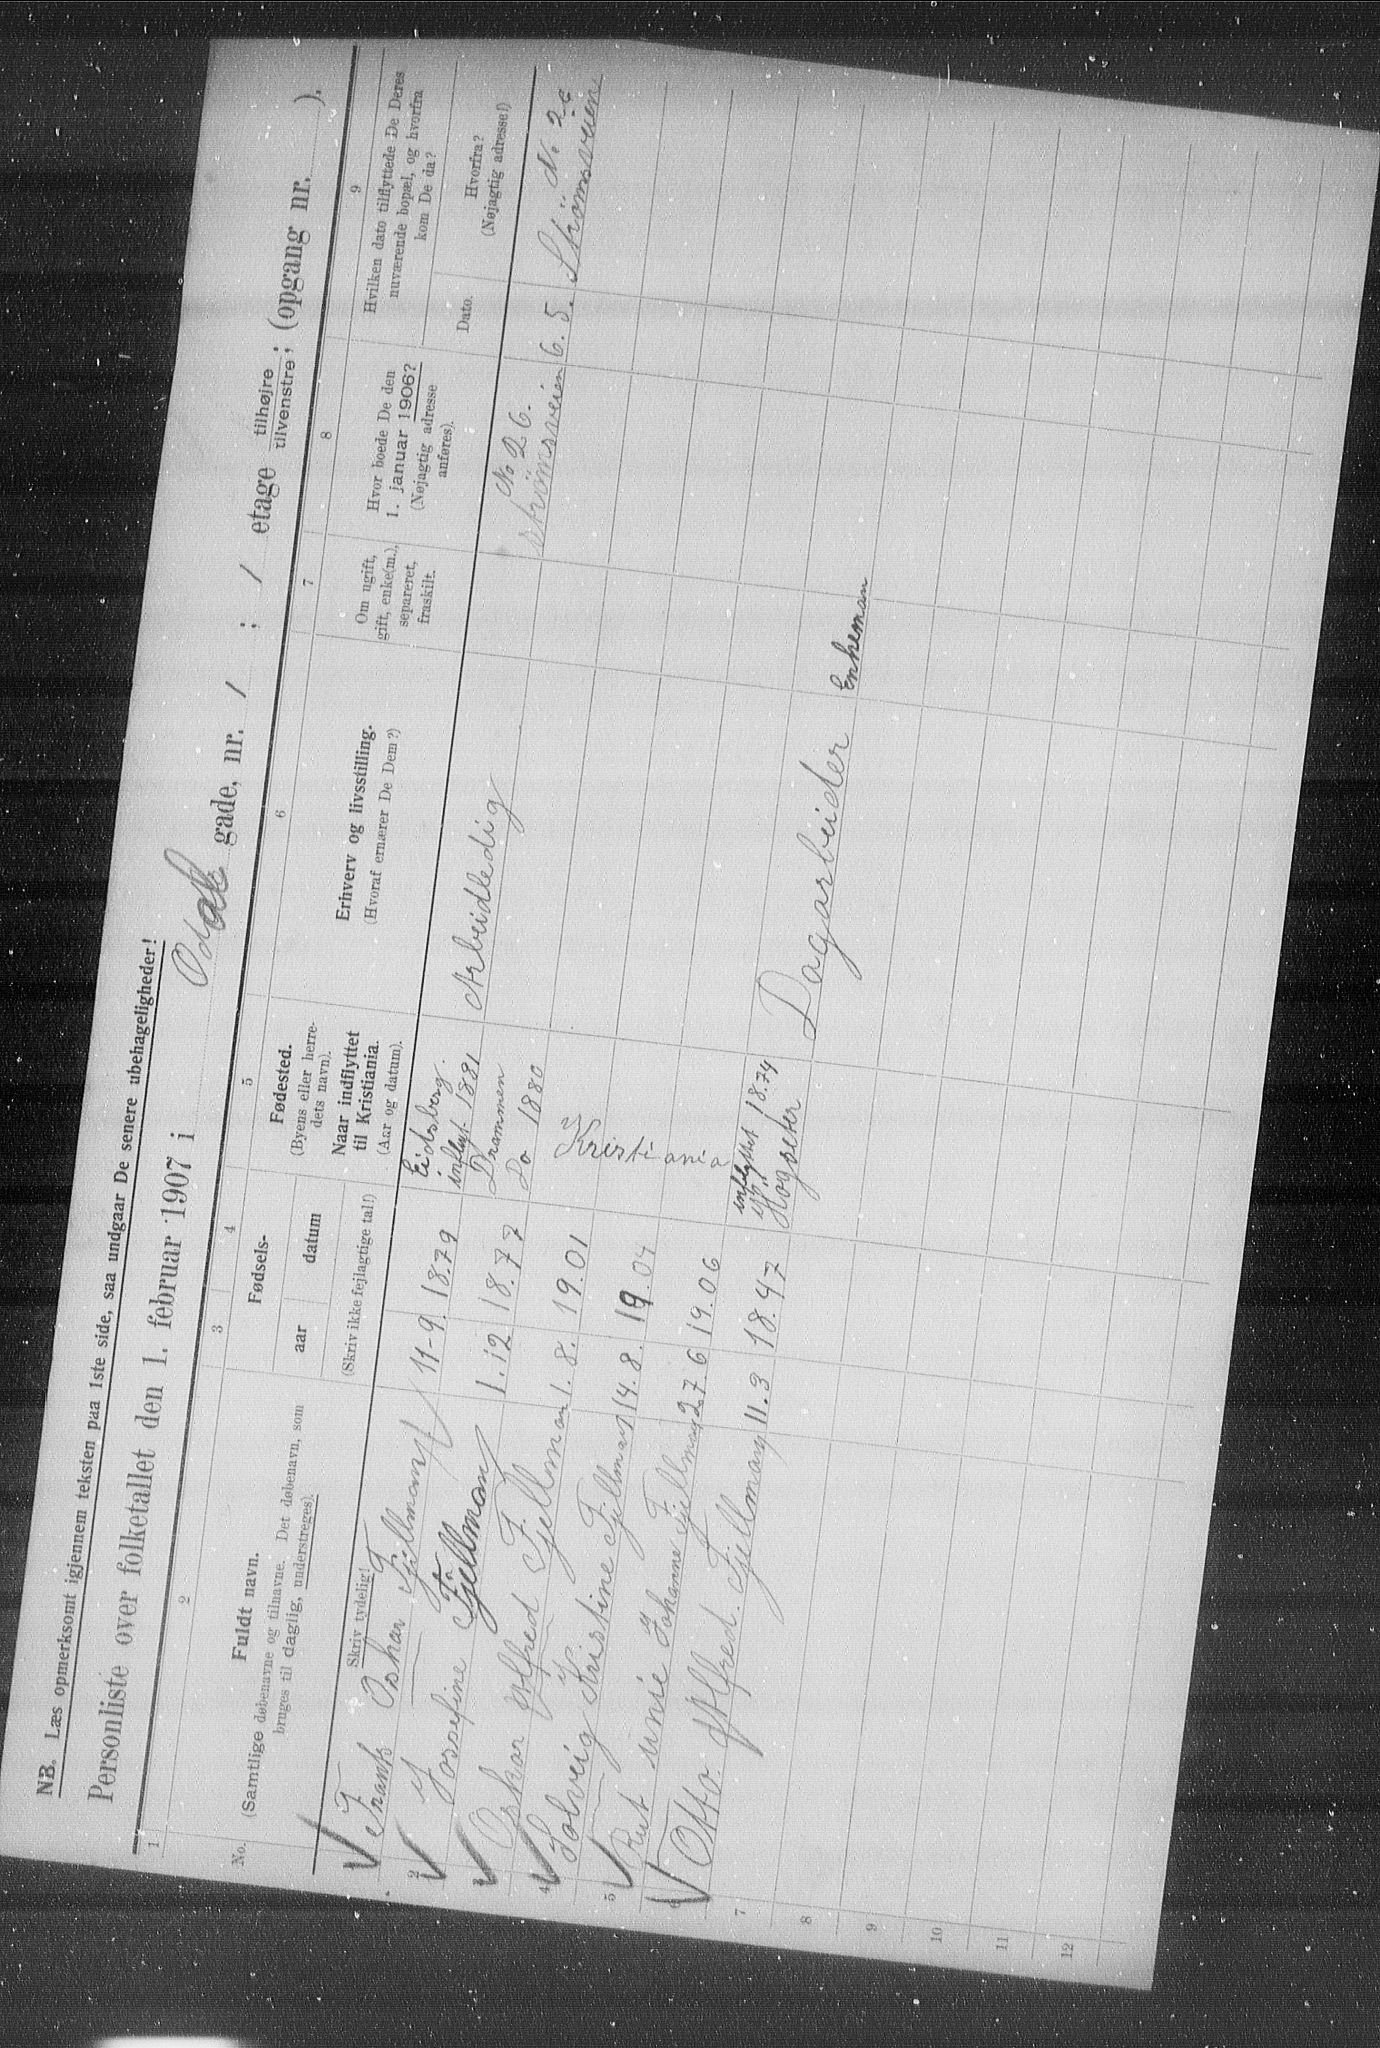 NB. Læs opmerksomt igjennem teksten paa 1ste side, saa undgaar De senere ubehageligheder!
Personliste over folketallet den 1. februar 1907 i gade, nr. 1 ; 1 etage tilhøjre tilvenstre; (opgang nr. ).
1 2 3 4 5 6 7 8 9
No.
Fuldt navn.
(Samtlige døbenavne og tilnavne. Det døbenavn, som
bruges til daglig, understreges).
Skriv tydelig!
Fødsels-
aar datum
(Skriv ikke fejlagtige tal!)
Fødested.
(Byens eller herre-
dets navn).
Naar indflyttet
til Kristiania.
(Aar og datum).
Erhverv og livsstilling.
(Hvoraf ernærer De Dem?)
Om ugift,
gift, enke(m.),
separeret,
fraskilt.
Hvor boede De den
1. januar 1906?
(Nøjagtig adresse
anføres).
Hvilken dato tilflyttede De Deres
nuværende bopæl, og hvorfra
kom De da?
Dato.
Hvorfra?
(Nøjagtig adresse!)
Frank Oskar Fjellman 11-9. 18.79 Eidsberg. indflyt. 1881 Arbeidledig No 26. Strömsveien 6. 5. Strömsveien No 26
2 Josefine Fjellman 1. 12 18.77 Drammen Do 1880
3 Oskar Alfred Fjellman 1. 8. 19.01 Kristiania
4 Solveig Kristine Fjellman 14. 8. 19.04
5 Rut Johanne Fjellman 27. 6 19.06
6 Otto Alfred. Fjellman 11. 3 18.47 indflyttet 18.74 Dagarbeider Enkeman
7
8
9
10
11
12